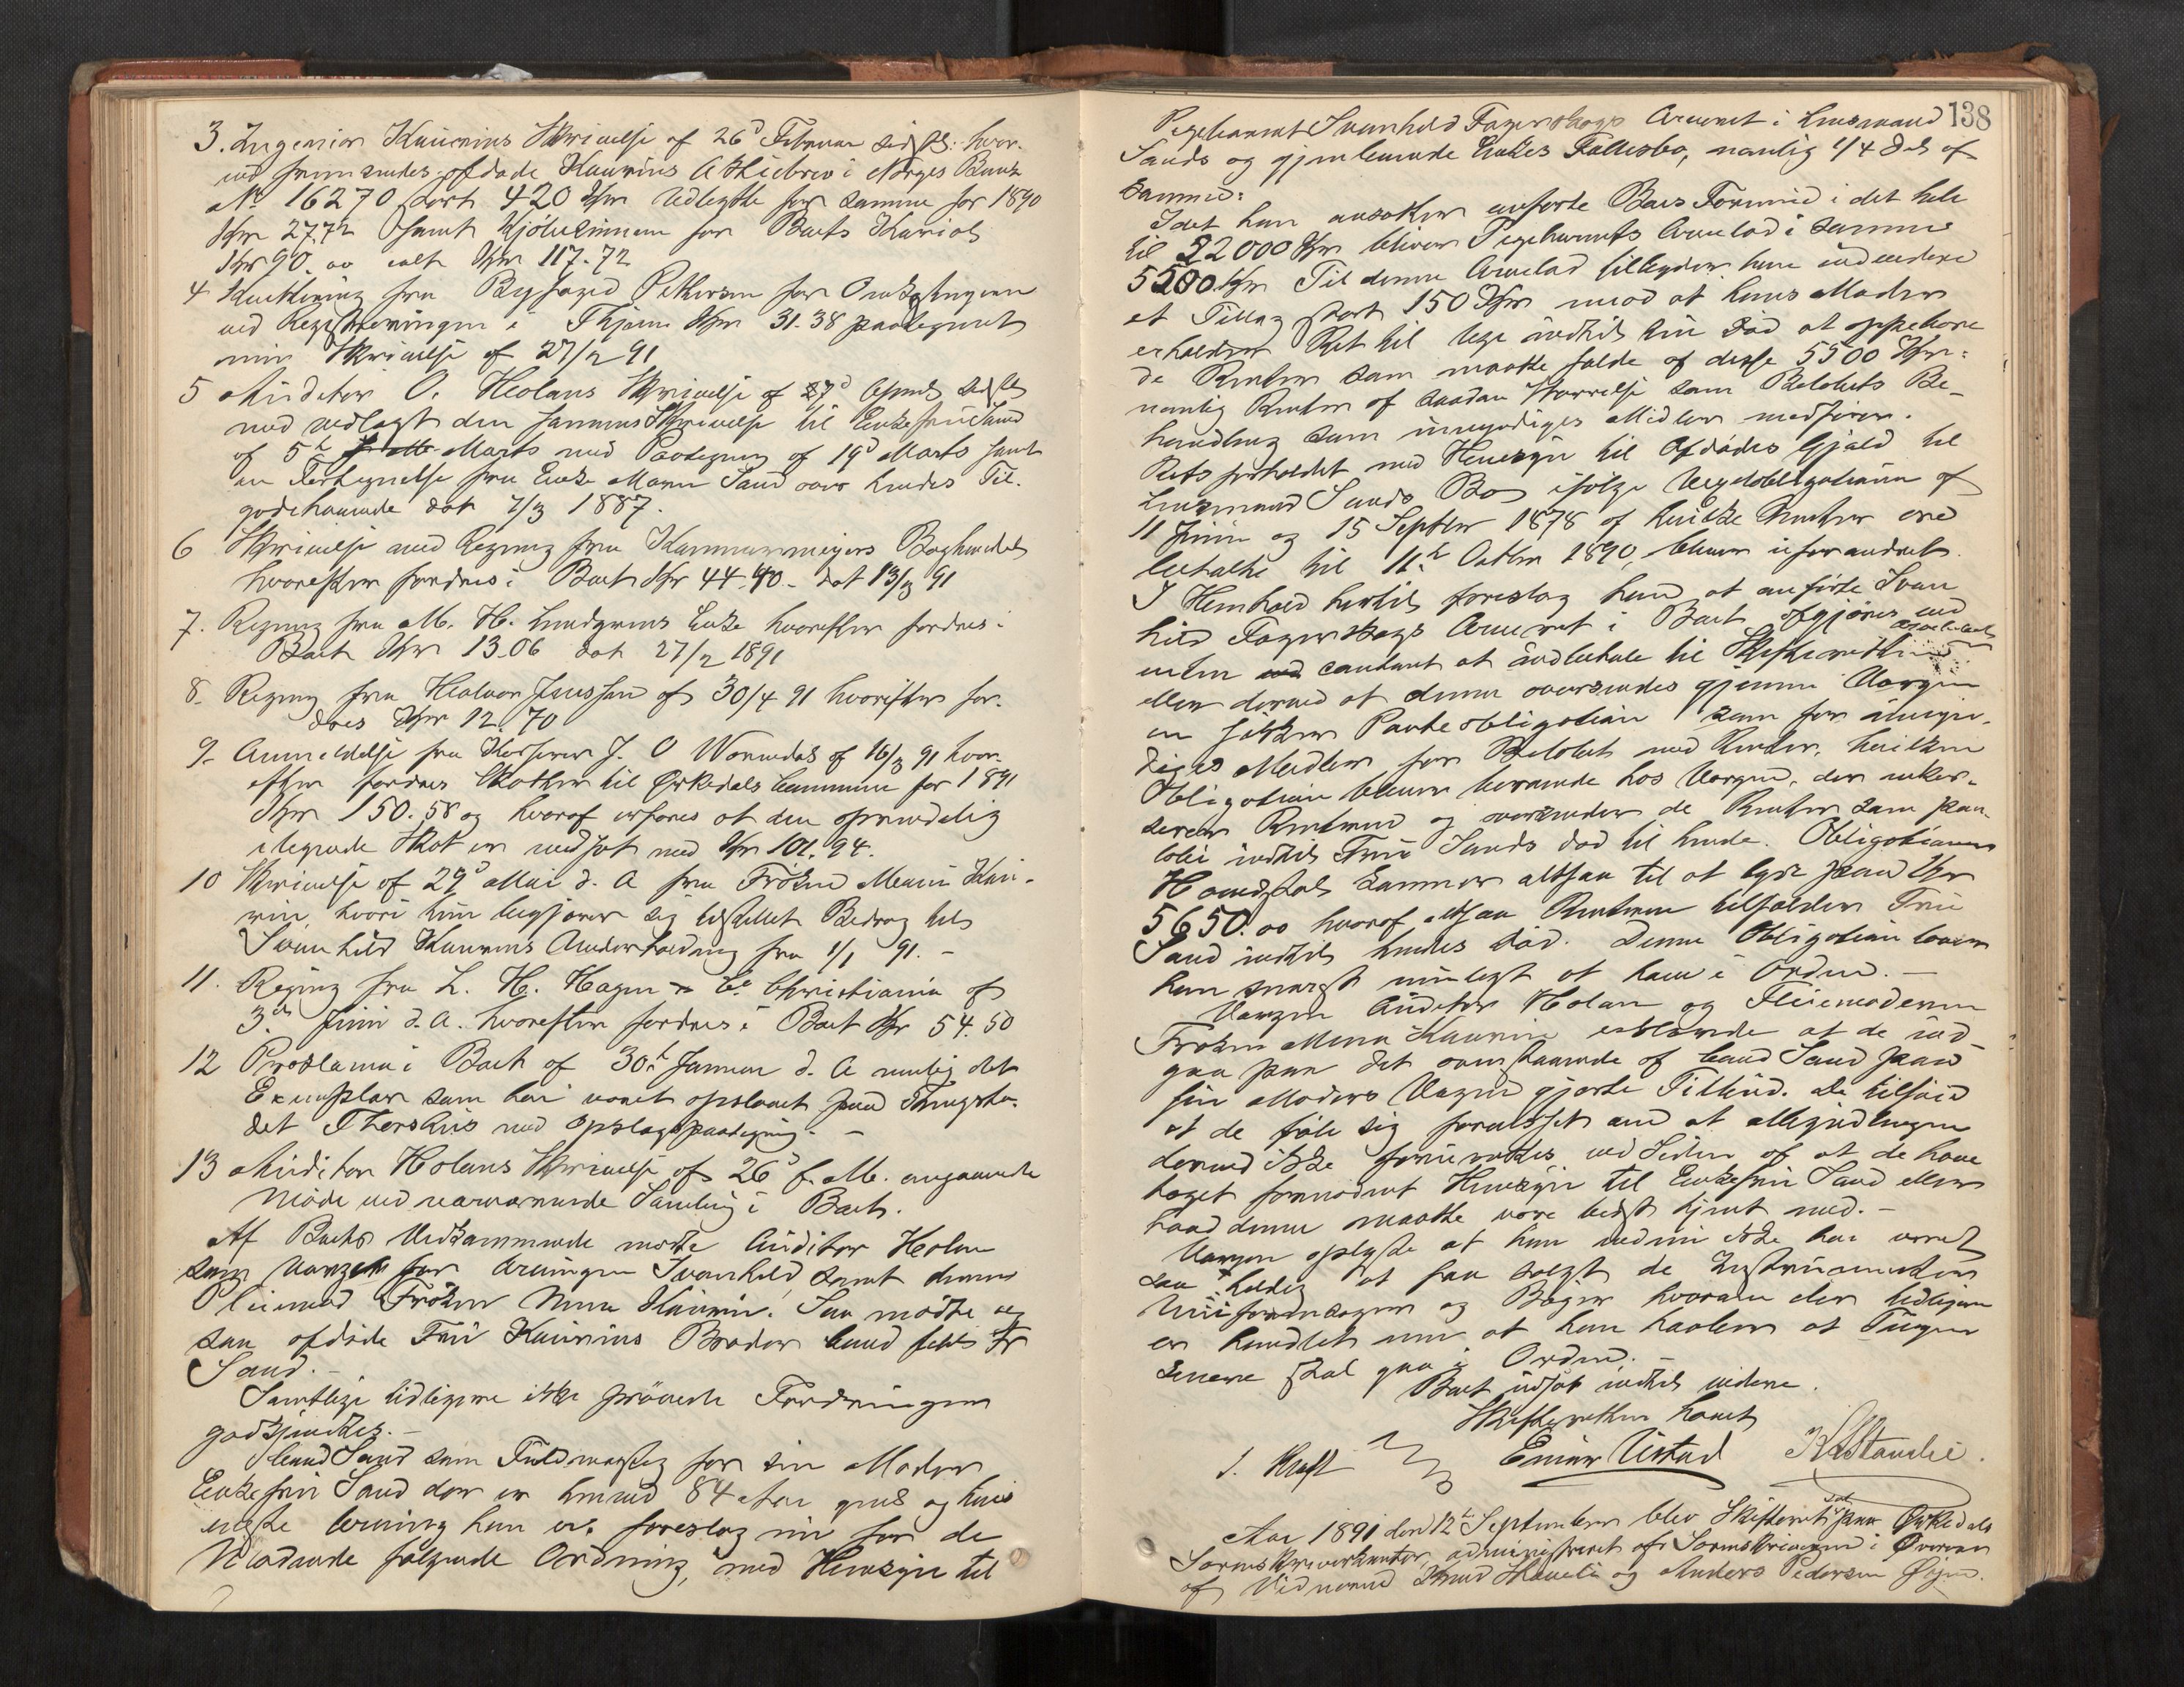 3. Ingeniør Kaurins Skrivelse af 26d Februar sidstl. hvor-
ved fremsendes afdøde Kaurins Aktiebrev i Norges Bank
No 16270 stort 420 Kr Udbytte for samme for 1890
Kr 27.72 samt for Boets Kariol
Kr 90. ialt Kr 117.72
4 fra Byfoged Petersen for Omkostningerne
ved Registreringen i Kr 31.38 paategnet
min Skrivelse af 27/2 91
5 Auditør O. Holans Skrivelse af 27d April sidstl
med vedlagt den sammes Skrivelse til Enkefru Sand
af 5te Marts med Paategning af 19d Marts samt
en Fortegnelse fra Enke Sand over hendes Til-
godehavende dat 7/3 1887.
6 Skrivelse med Regning fra Kammermeyers Boghandel
hvorefter fordres i Boet Kr 44.40 - dat 13/3 91
7. Regning fra M. H. Lundgrens Enke hvorefter fordres i
Boet Kr 13.06 dat 27/2 1891
8. Regning fra Halvor Jensen af 30/4 91 hvorefter for-
dres Kr 12.70
9. Anmeldelse fra Kasserer J. O Wormdal af 16/3 91 hvor-
efter fordres Skatter til Ørkedals Commune for 1891
Kr 150.58 og hvoraf erfares at den oprindelig
ilignede Skat er nedsat med Kr 101.94.
10 Skrivelse af 29d Mai d. A fra Frøken Mena Kau-
rin hvori hun begjærer sig tilstillet Bidrag til
Svanhild Kaurins Underholdning fra 1/1 91. -
11. Regning fra L. H. Hagen & Co Christiania af
3die Juni d. A. hvorefter fordres i Boet Kr 54.50
12 Proklama i Boet af 30te Januar d. A nemlig det
Exemplar som har været opslaaet paa Thingste-
det med Opslagspaategning. -
13 Auditør Holans Skrivelse af 26d f. M. angaaende
Møde ved nærværende Samling i Boet.
Af Boets Vedkommende mødte Auditør Holan
som Værge for Arvingen Svanhild samt dennes
Pleiemoder Frøken Mena Kaurin. Saa mødte og-
saa afdøde Fru Kaurins Broder Cand
Sand. -
Samtlige tidligere ikke prøvede Fordringer
godkjendtes. -
Cand Sand som Fuldmægtig for sin Moder
Enkefru Sand der er henved 84 Aar gml og hvis
eneste Arving han er, foreslog nu for de
Mødende følgende Ordning, med Hensyn til
138
Pigebarnet Svanhild Fagerskogs Arveret i Lensmand
Sands og gjenlevende Enkes Fællesbo, nemlig 1/4 Del af
samme:
Idet han ansætter anførte Boes Formue i det hele
til 22000 Kr bliver Pigebarnets Arvelod i samme
5500 Kr Til denne Arvelod tilbyder han endvidere
et Tillæg stort 150 Kr mod at hans Moder
erholder Ret til lige indtil sin Død at oppebære
de Renter som maatte falde af disse 5500 Kr:
nemlig Renter af saadan Størrelse som Beløbets Be-
handling som umyndiges Midler medfører.
Retsforholdet med Hensyn til Afdødes Gjæld til
Lensmand Sands Bo ifølge Gjeldsobligationen af
11 Juni og 15 Septbr 1878 af hvilke Renter ere
betalte til 11te Octbr 1890, bliver uforandret.
I Henhold hertil foreslog han at anførte Svan
hild Fagerskogs Arveret i Boet afgjøres ved
enten contant at indbetale til Skifteretten Arvebeløbet
eller derved at denne oversendes gjennem Værgen
en sikker Panteobligation som for umyn-
diges Midler for Beløbet med Renter, hvilken
Obligation bliver beroende hos Værgen, der inkas-
serer Renterne og oversender de Renter som paa-
løbe indtil Fru Sands død til hende. Obligationens
Hovedstol kommer altsaa til at lyde paa Kr
5650.00 hvoraf altsaa Renterne tilfalder Fru
Sand indtil hendes død. Denne Obligation lover
han snarest muligt at have i Orden. -
Værgen Auditør Holan og Pleiemoderen
Frøken Mena Kaurin erklærede at de ind-
gaa paa det ovenstaaende af Cand Sand paa
sin Moders Vegne gjorte Tilbud. De tilføied
at de føle sig forvisset om at Myndlingen
derved ikke forurettes ved Siden af at de have
taget fornødent Hensyn til Enkefru Sand eller
hvad denne maatte være bedst tjent med. -
Værgen oplyste at han endnu ikke har været
saa heldig at faa solgt de Instrumenter
Uniformssager og Bøger hvorom der tidligere
er handlet men at han haaber at Tingen
senere skal gaa i Orden. -
Boet udsat indtil videre.
Skifteretten hævet
J. Kraft Einar Ustad K. Standli.
Aar 1891 den 12te September blev Skifteret sat paa Ørkedals
Sorenskriverkontor, administreret af Sorenskriveren i Overvær
af Vidnerne Knud og Anders Pedersen